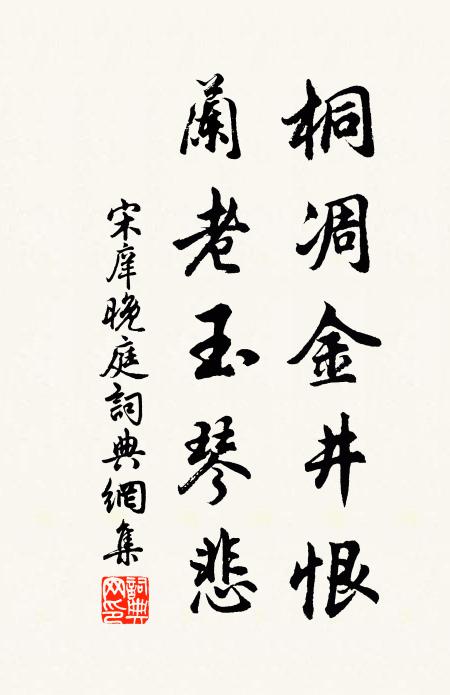 桐凋金井恨
蘭老玉琴悲
宋庠晚庭詞典網集
詞典網印